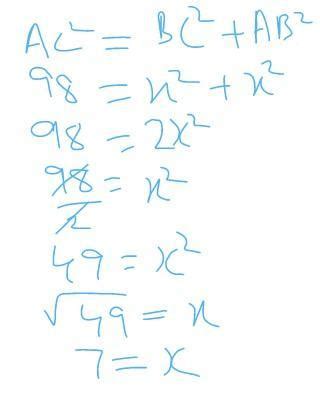 AC² = BC² + AB²
98 = x² + x²
98 = 2x²
98/2 = x²
49 = x²
√49 = x
7 = x